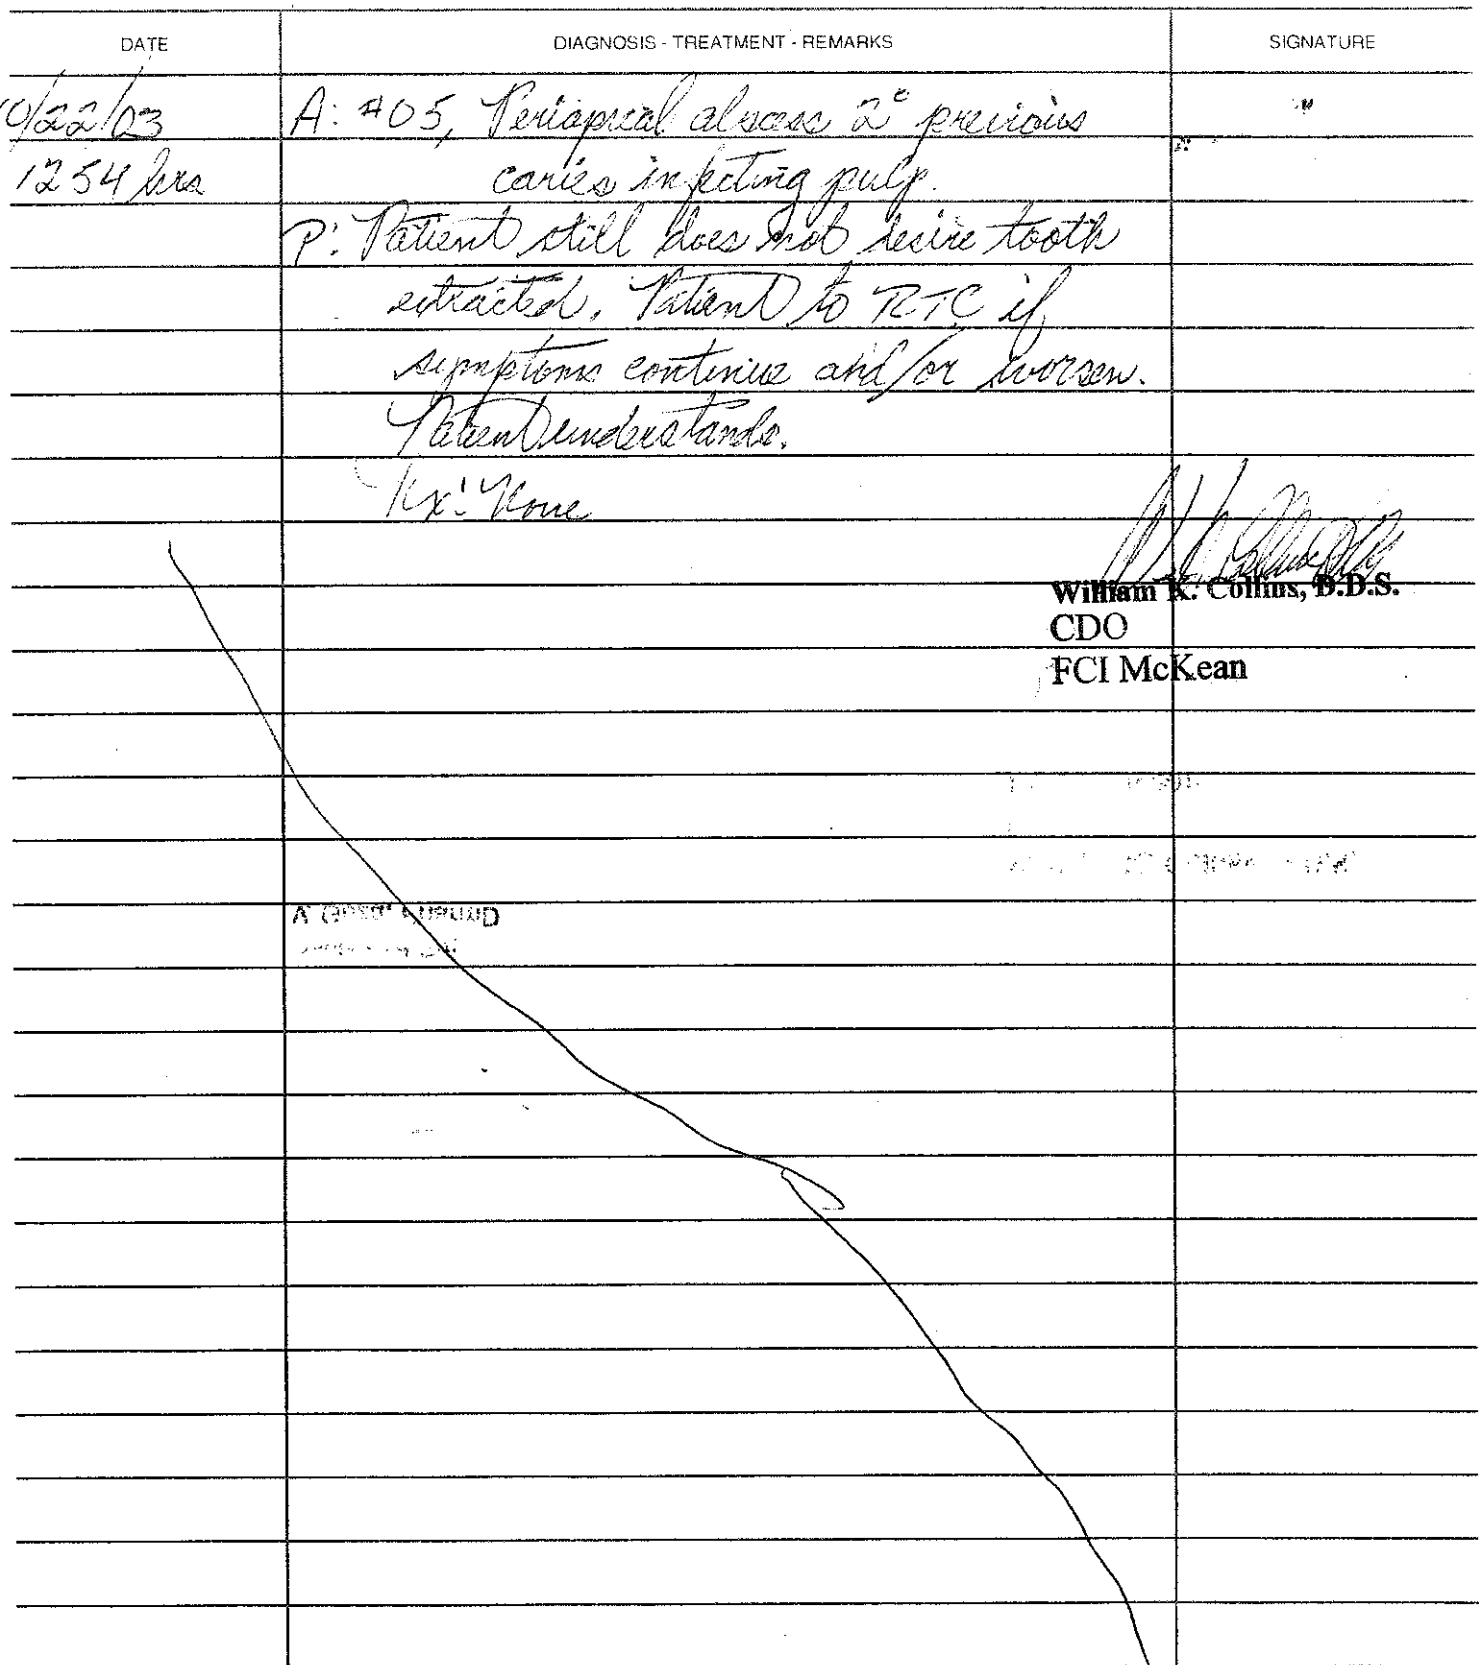 DATE DIAGNOSIS - TREATMENT - REMARKS SIGNATURE
0/22/03 A: #05, Periapical abscess 2° previous
1254 hrs caries infecting pulp.
P: Patient still does not desire tooth
extracted. Patient to RTC if
symptoms continue and/or worsen.
Patient understands.
Rx: None
William K. Collins, D.D.S.
CDO
FCI McKean